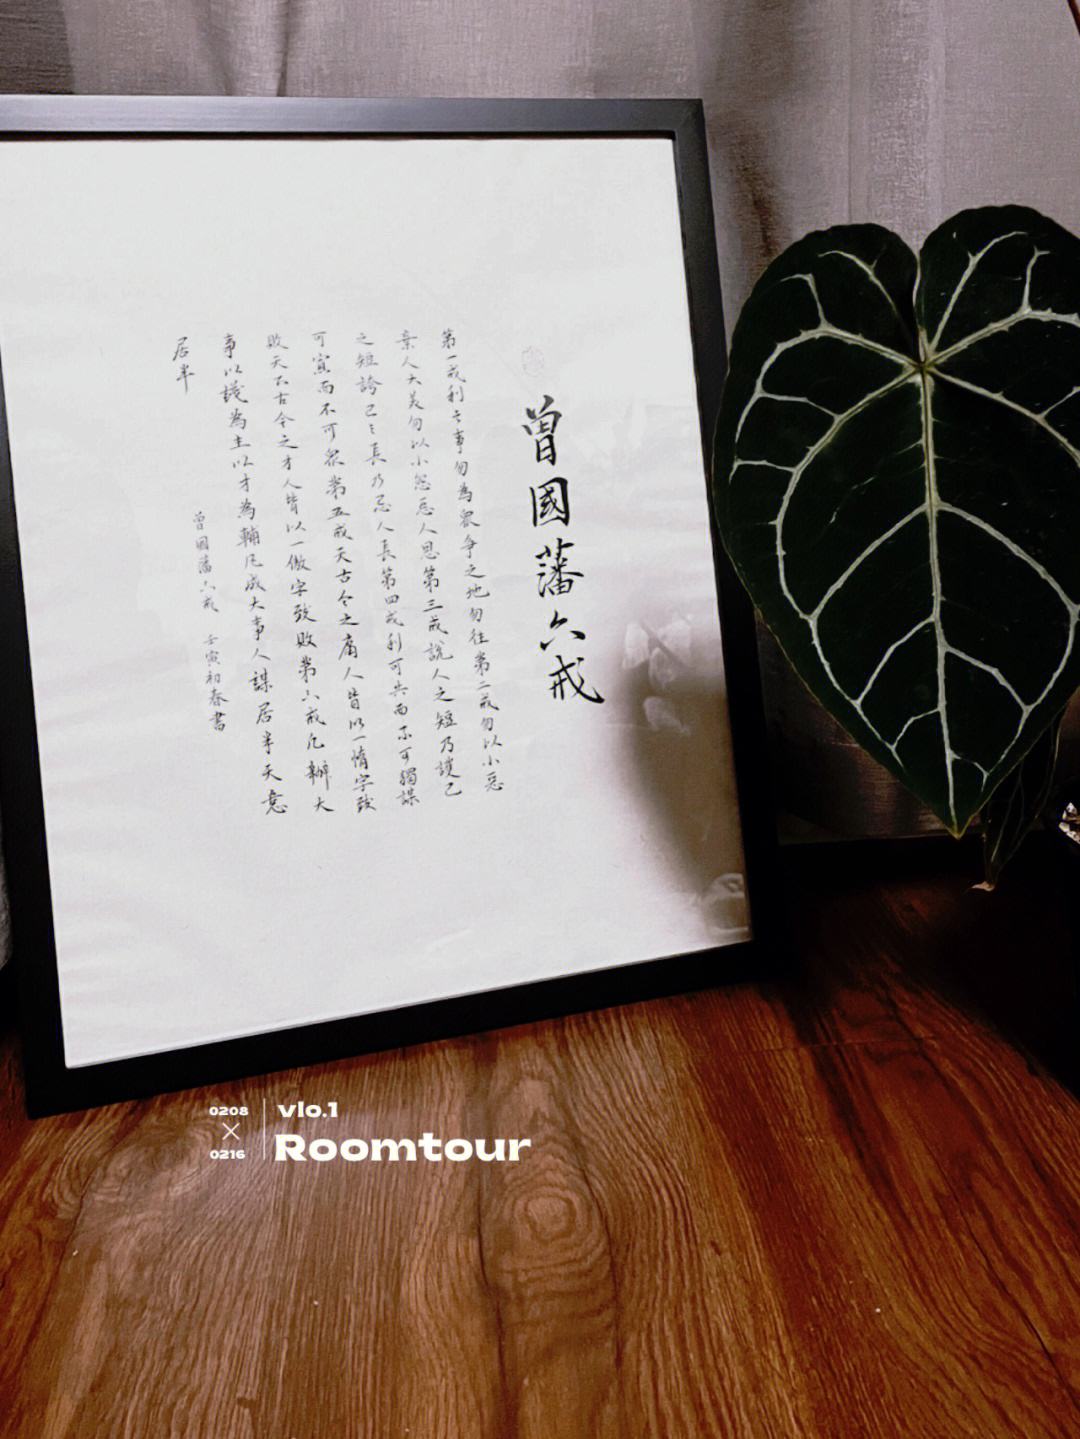 曾國藩六戒
第一戒利之事勿為眾爭之地勿往第二戒勿以小惡
棄人大美勿以小怨忘人恩第三戒說人之短乃護己
之短誇己之長乃忌人長第四戒利可共而不可獨謀
可寡而不可眾第五戒天古今之庸人皆以一惰字致
敗天下古今之才人皆以一傲字致敗第六戒凡辦大
事以識為主以才為輔凡成大事人謀居半天意
居半
曾國藩六戒 壬寅初春書
0208
×
0216
vlo.1
Roomtour